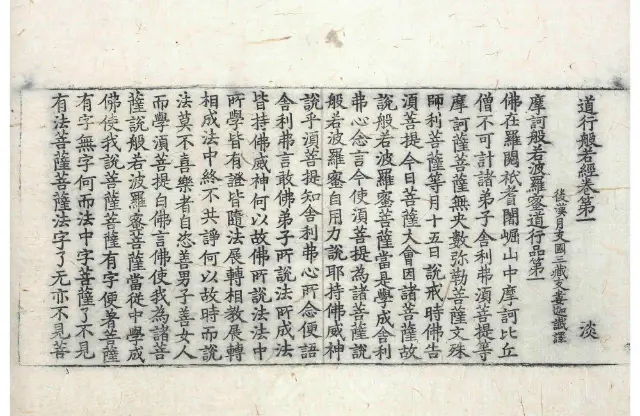 道行般若經卷第一 淡
後漢月支國三藏支婁迦讖譯
摩訶般若波羅蜜道行品第一
佛在羅閱祇耆闍崛山中摩訶比丘
僧不可計諸弟子舍利弗須菩提等
摩訶薩菩薩無央數弥勒菩薩文殊
師利菩薩等月十五日說戒時佛告
須菩提今日菩薩大會因諸菩薩故
說般若波羅蜜菩薩當是學成舍利
弗心念言今使須菩提為諸菩薩說
般若波羅蜜自用力說耶持佛威神
說乎須菩提知舍利弗心所念便語
舍利弗言敢佛弟子所說法所成法
皆持佛威神何以故佛所說法法中
所學皆有證皆隨法展轉相教展轉
相成法中終不共諍何以故時而說
法莫不喜樂者自恣善男子善女人
而學須菩提白佛言佛使我為諸菩
薩說般若波羅蜜菩薩當從中學成
佛使我說菩薩菩薩有字便著菩薩
有字無字何而法中字菩薩了不見
有法菩薩菩薩法字了无亦不見菩